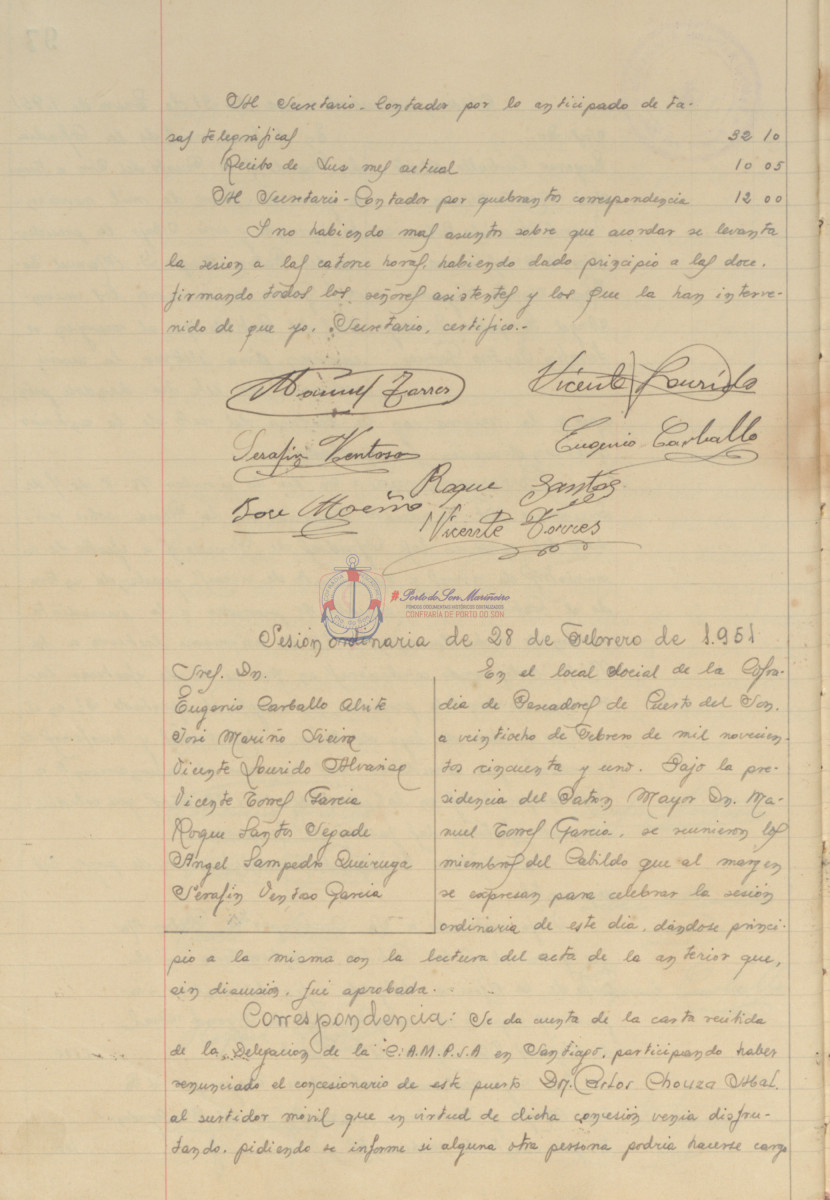 Al Secretario-Contador por lo anticipado de ta-
sas telegráficas 32 10
Recibo de Luz mes actual 10 05
Al Secretario-Contador por quebrantos correspondencia 12 00
I no habiendo mas asuntos sobre que acordar se levanta
la sesion a las catorce horas, habiendo dado principio a las doce,
firmando todos los señores asistentes y los que la han interve-
nido de que yo, Secretario, certifico.-
Manuel Torres
Vicente Lourido
Serafin Ventoso
Eugenio Carballo
Roque Santos
Jose Mariño
Vicente Torres
#Porto do Son Mariñeiro
FONDOS DOCUMENTAIS HISTÓRICOS DIXITALIZADOS
CONFRARÍA DE PORTO DO SON
Sesión ordinaria de 28 de Febrero de 1.951
Sres. Dn.
Eugenio Carballo Alvite
José Mariño Vieira
Vicente Lourido Alvariaz
Vicente Torres Garcia
Roque Santos Segade
Angel Sampedro Queiruga
Serafin Ventoso Garcia
En el local Social de la Cofra-
dia de Pescadores de Puerto del Son,
a veintiocho de Febrero de mil novecien-
tos cincuenta y uno. Bajo la pre-
sidencia del Patron Mayor Dn. Ma-
nuel Torres Garcia, se reunieron los
miembros del Cabildo que al margen
se expresan para celebrar la sesión
ordinaria de este dia, dándose princi-
pio a la misma con la lectura del acta de la anterior que,
sin discusión, fui aprobada.
Correspondencia: Se da cuenta de la carta recitida
de la Delegacion de la C.A.M.P.S.A en Santiago, participando haber
renunciado el concesionario de este puerto Dn. Carlos Chouza Abal,
al surtidor móvil que en virtud de dicha concesión venia disfru-
tando, pidiendo se informe si alguna otra persona podria hacerse cargo